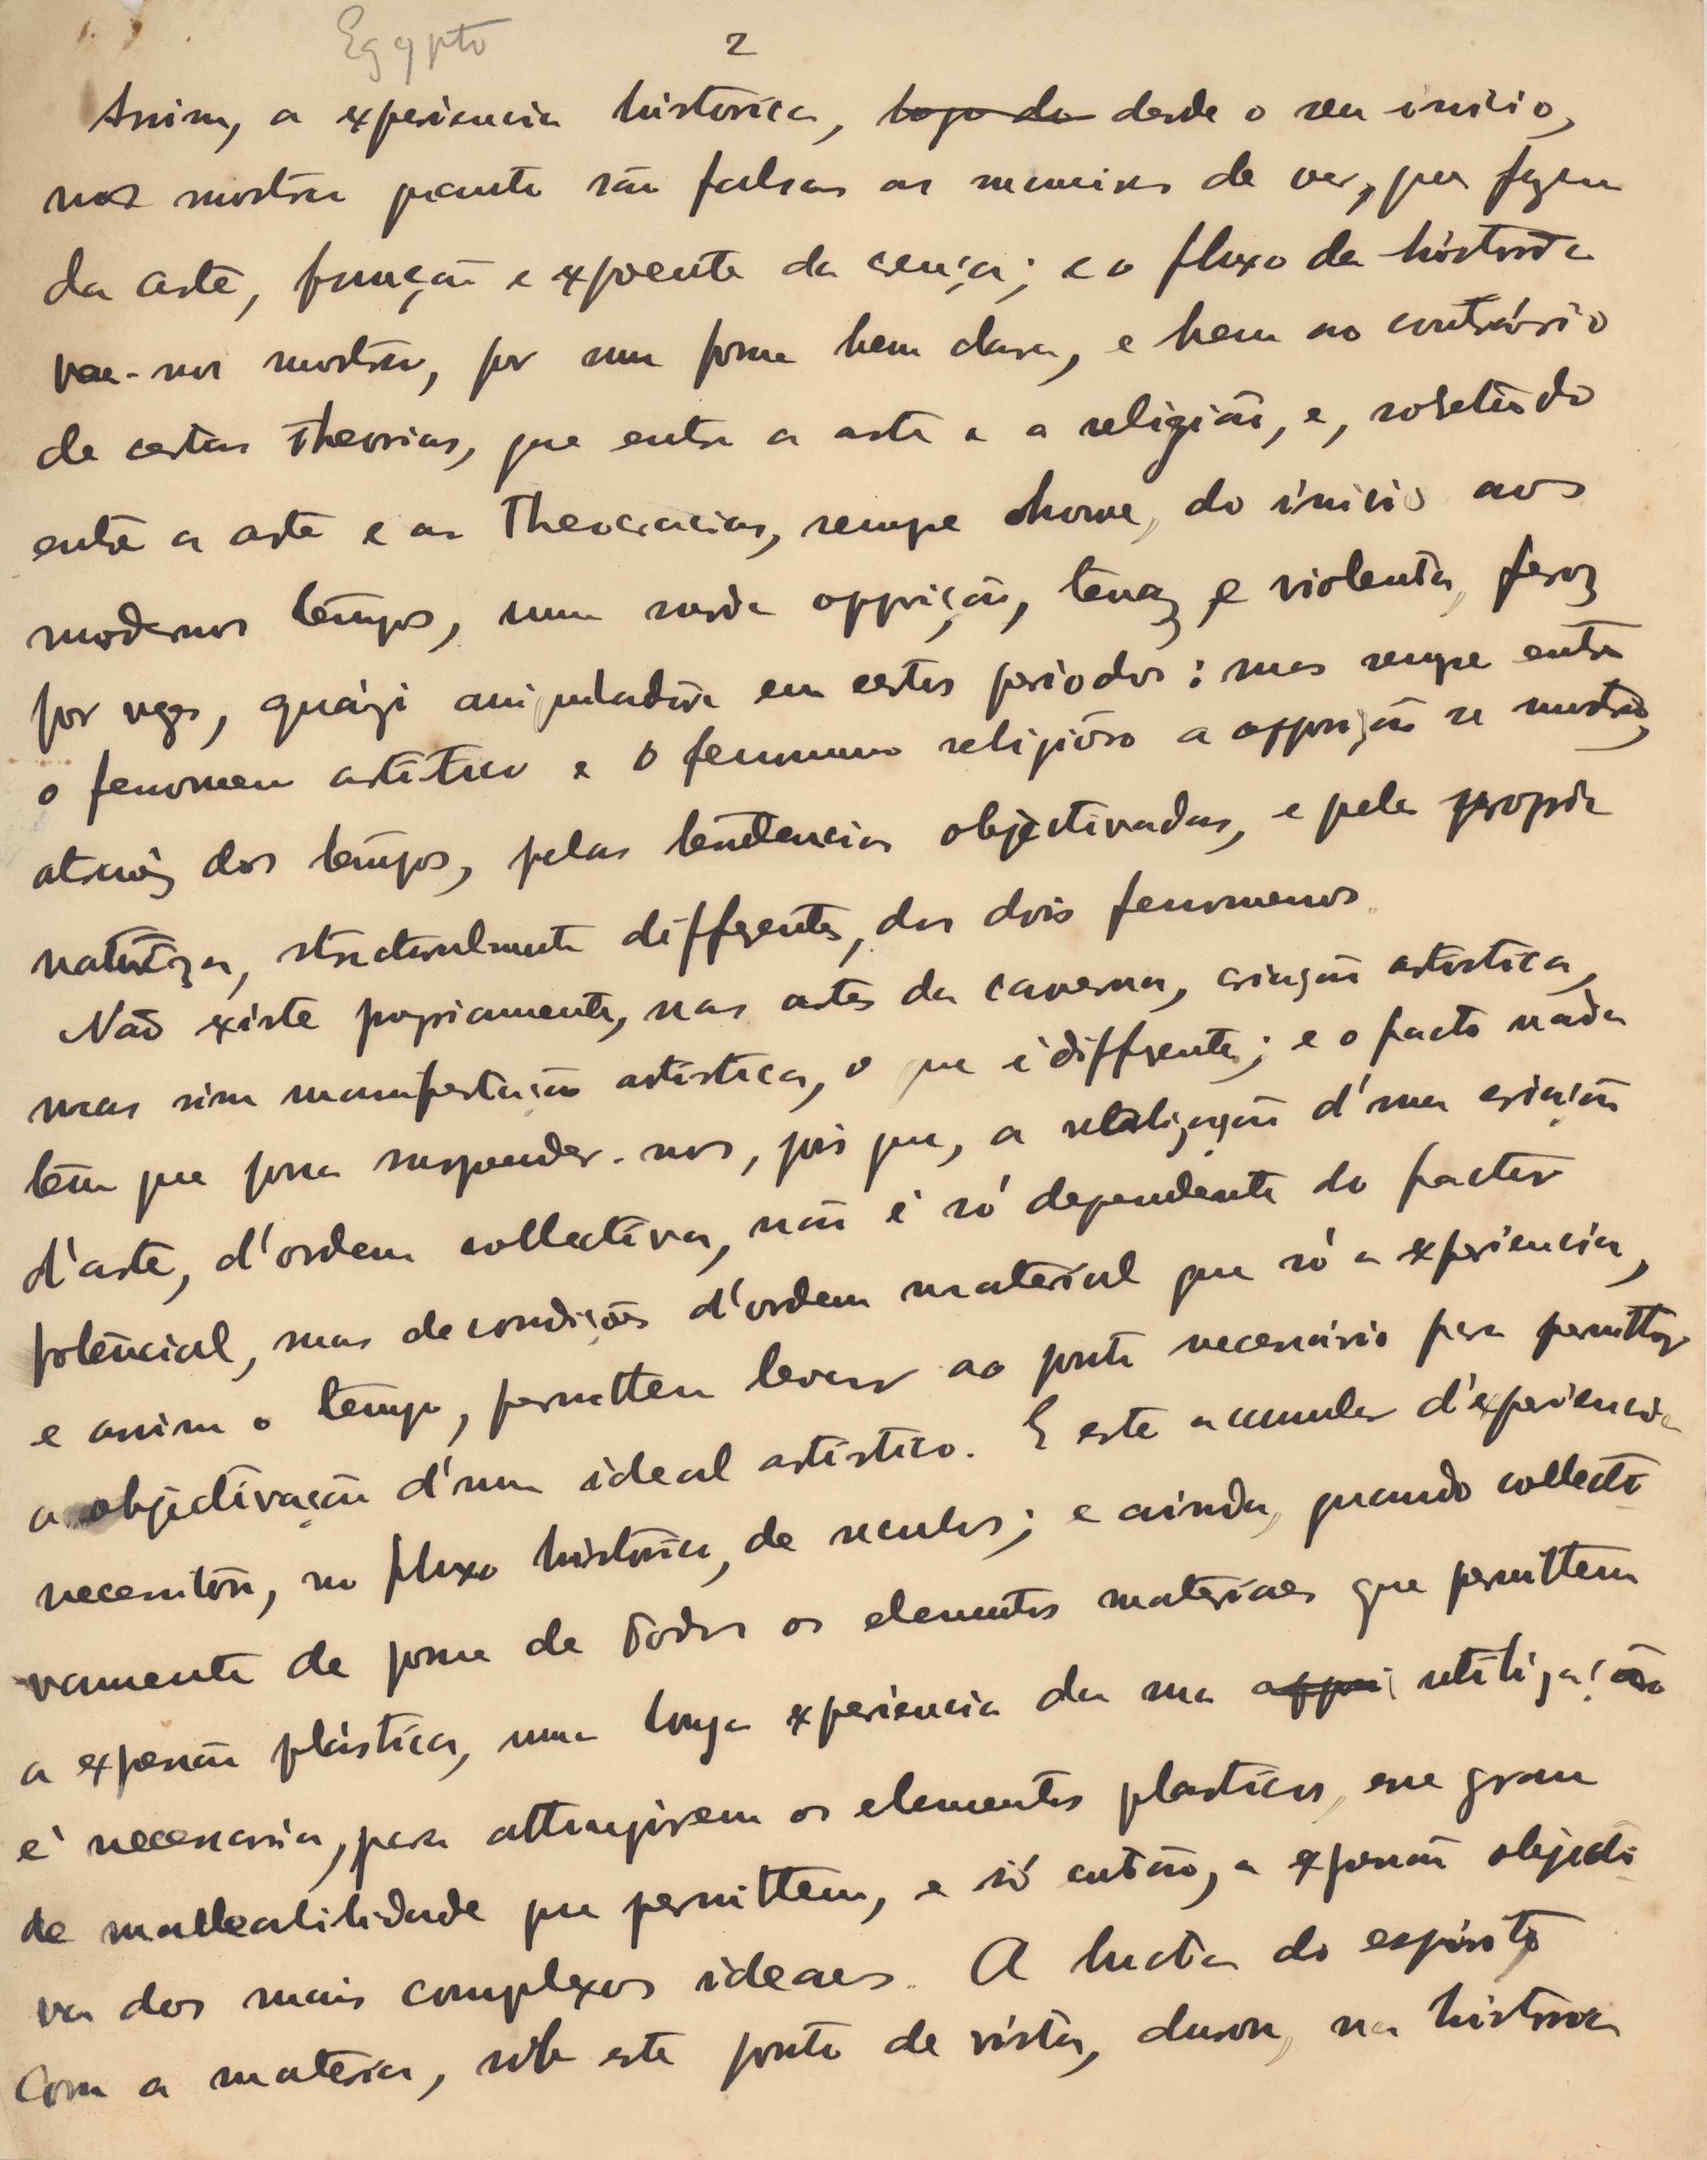 Egypto
2
Assim, a experiencia historica, logo do desde o seu inicio,
nos mostra quanto são falsas as maneiras de ver, que fazem
da arte, funcção e expoente da crença; e o fluxo da historia
vae-nos mostrar, por uma forma bem clara, e bem ao contrário
de certas theorias, que entre a arte e a religião, e, sobretudo
entre a arte e as Theocracias, sempre houve, do inicio aos
modernos tempos, uma surda opposição, tenaz e violenta, feroz
por vezes, quázi aniquiladora em certos periodos: mas sempre entre
o fenomeno artistico e o fenomeno religiôso a opposição se mostrou,
atravéz dos tempos, pelas tendencias objectivadas, e pela propria
naturêza, structuralmente differente, dos dois fenomenos.
Não existe propriamente, nas artes da caverna, criação artistica,
mas sim manifestação artistica, o que é differente; e o facto nada
tem que possa surprender-nos, pois que, a realização d'uma criação
d'arte, d'ordem collectiva, não é só dependente do factor
potencial, mas de condições d'ordem material que só a experiencia,
e assim o tempo, permittem levar ao ponto necessário para permittir
a objectivação d'um ideal artistico. E este accumular d'experiencia
necessitou, no fluxo historico, de seculos; e ainda, quando collecti
vamente de posse de todos os elementos materiaes que permittem
a expressão plástica, uma longa experiencia da sua utilização
é necessaria, para attingirem os elementos plasticos, esse grau
de malleabilidade que permittem, e só então, a expressão objecti
va dos mais complexos ideaes. A lucta do espirito
com a materia, sob este ponto de vista, durou, na historia